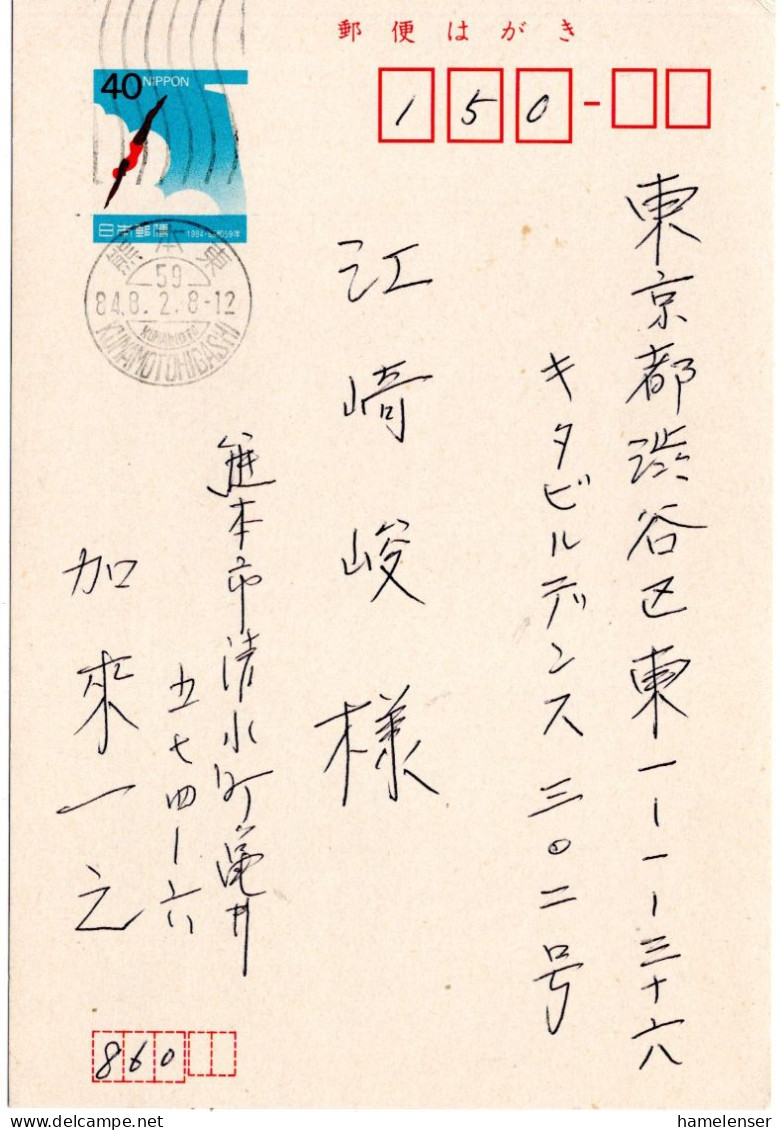 郵便はがき
150
40 NIPPON
日本郵便 1984・昭和59年
熊本東
59
84.8.2.8-12
KUMAMOTO
KUMAMOTOHIGASHI
東京都渋谷区東一ー一ー三十六
キタビルデンス三〇二号
江崎峻様
熊本市清水町亀井
五七四ー六
加來一之
860
hamelenser